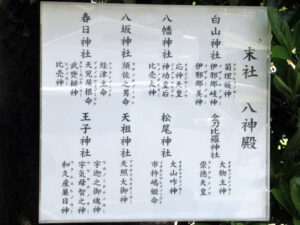 末社 八神殿
白山神社
菊理媛神
伊邪那岐神
伊邪那美神
金刀比羅神社
大物主神
崇徳天皇
八幡神社
応神天皇
神功皇后
比売大神
松尾神社
大山咋神
市杵嶋姫命
八坂神社
須佐之男命
天祖神社
天照大御神
春日神社
経津主命
天児屋根命
武甕槌神
比売神
王子神社
宇迦之御魂神
宇気母智之神
和久産巣日神